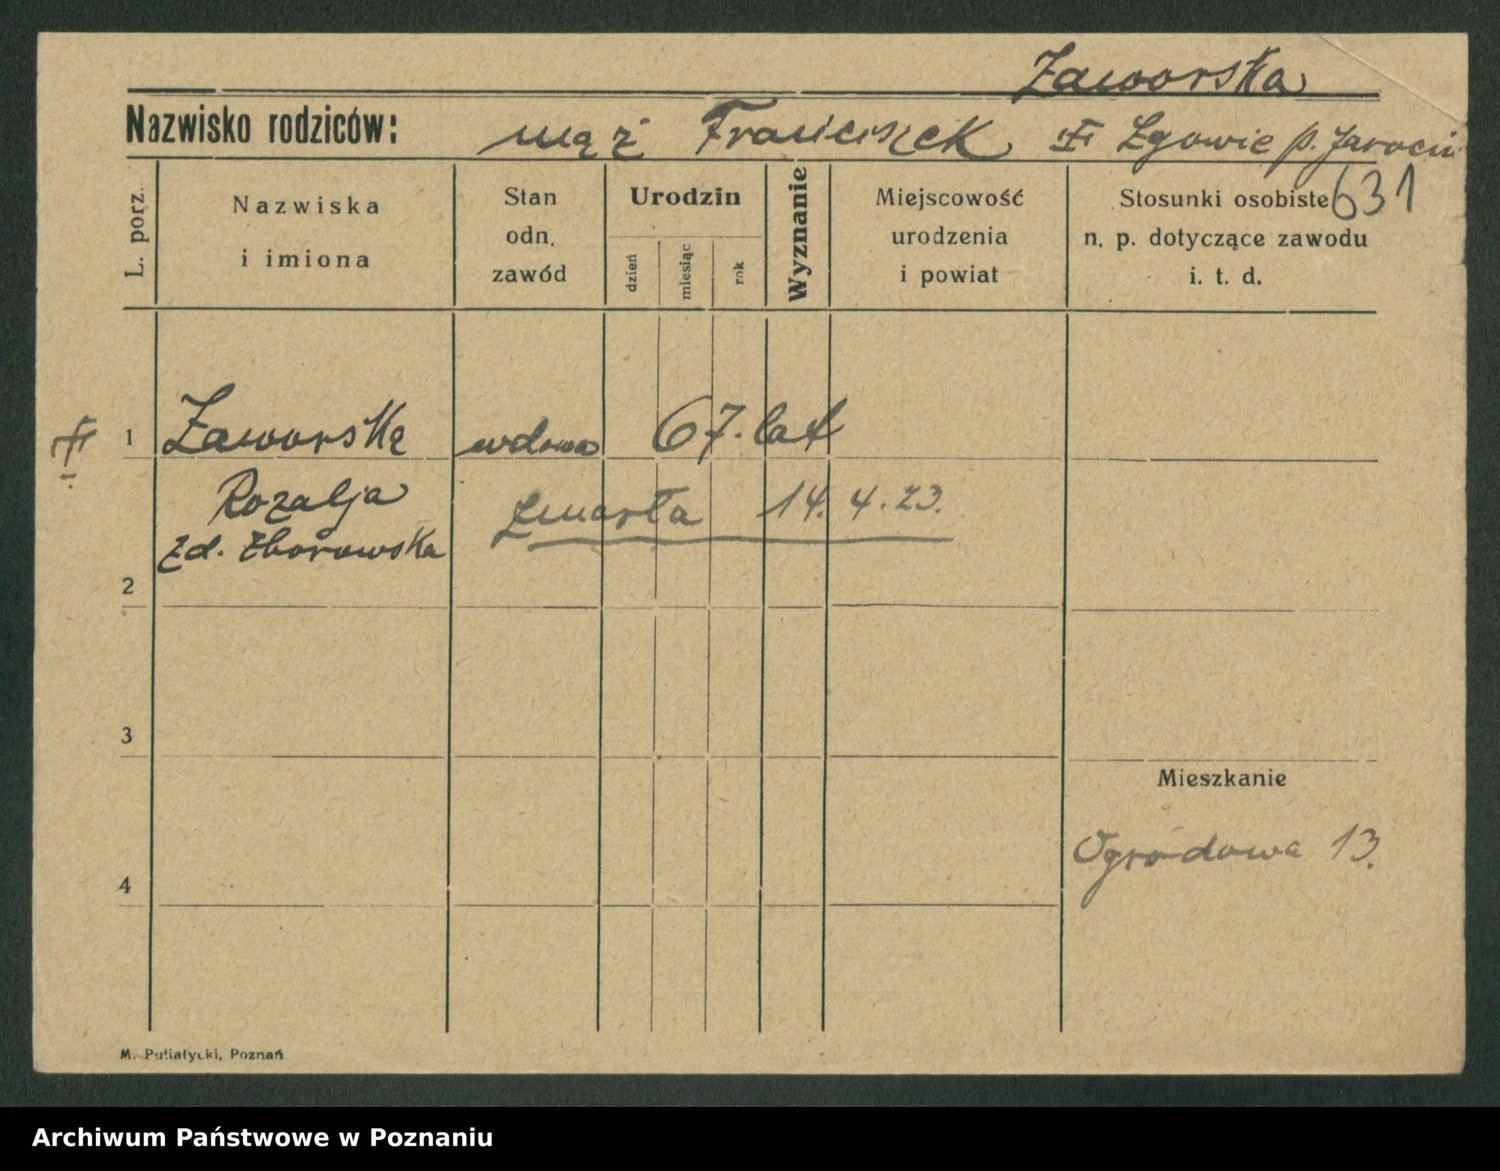 Zaworska
Nazwisko rodziców: mąż Franciszek Zgowie p. Jarocin
631
L. porz.
Nazwiska
i imiona
Stan
odn.
zawód
Urodzin
dzień
miesiąc
rok
Wyznanie
Miejscowość
urodzenia
i powiat
Stosunki osobiste
n. p. dotyczące zawodu
i. t. d.
1 Zaworska wdowa 67. lat
Rozalja zmarła 14. 4. 23.
zd. Zborowska
2
3
Mieszkanie
Ogródowa 13.
4
M. Putiatycki, Poznań
Archiwum Państwowe w Poznaniu